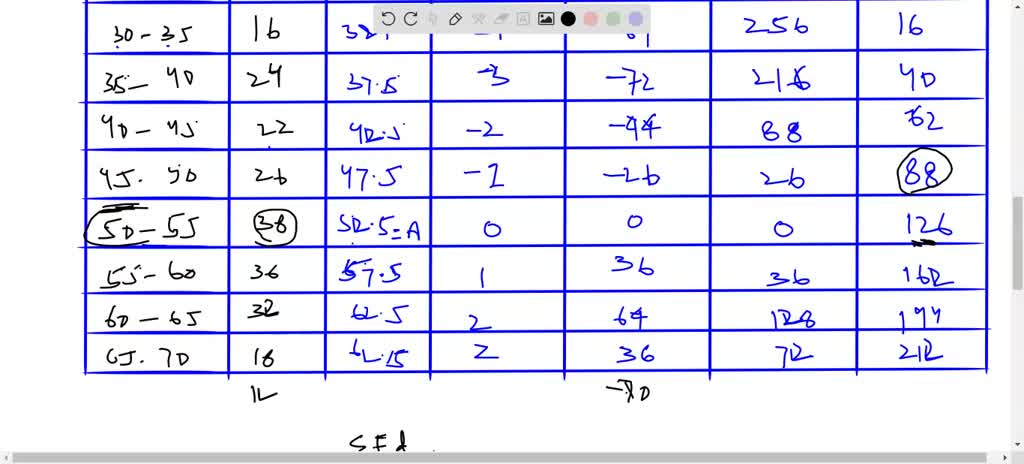 30-35 16 256 16
35- 40 24 37.5 -3 -72 216 40
40-45 22 42.5 -2 -44 88 62
45. 50 26 47.5 -1 -26 26 88
50-55 38 52.5=A 0 0 0 126
55-60 36 57.5 1 36 36 162
60-65 32 62.5 2 64 128 194
65. 70 18 2 36 72 212
12